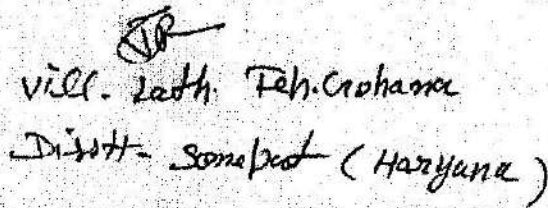 Vill. Lath. Teh. Gohana
Distt- Sonepat (Haryana)